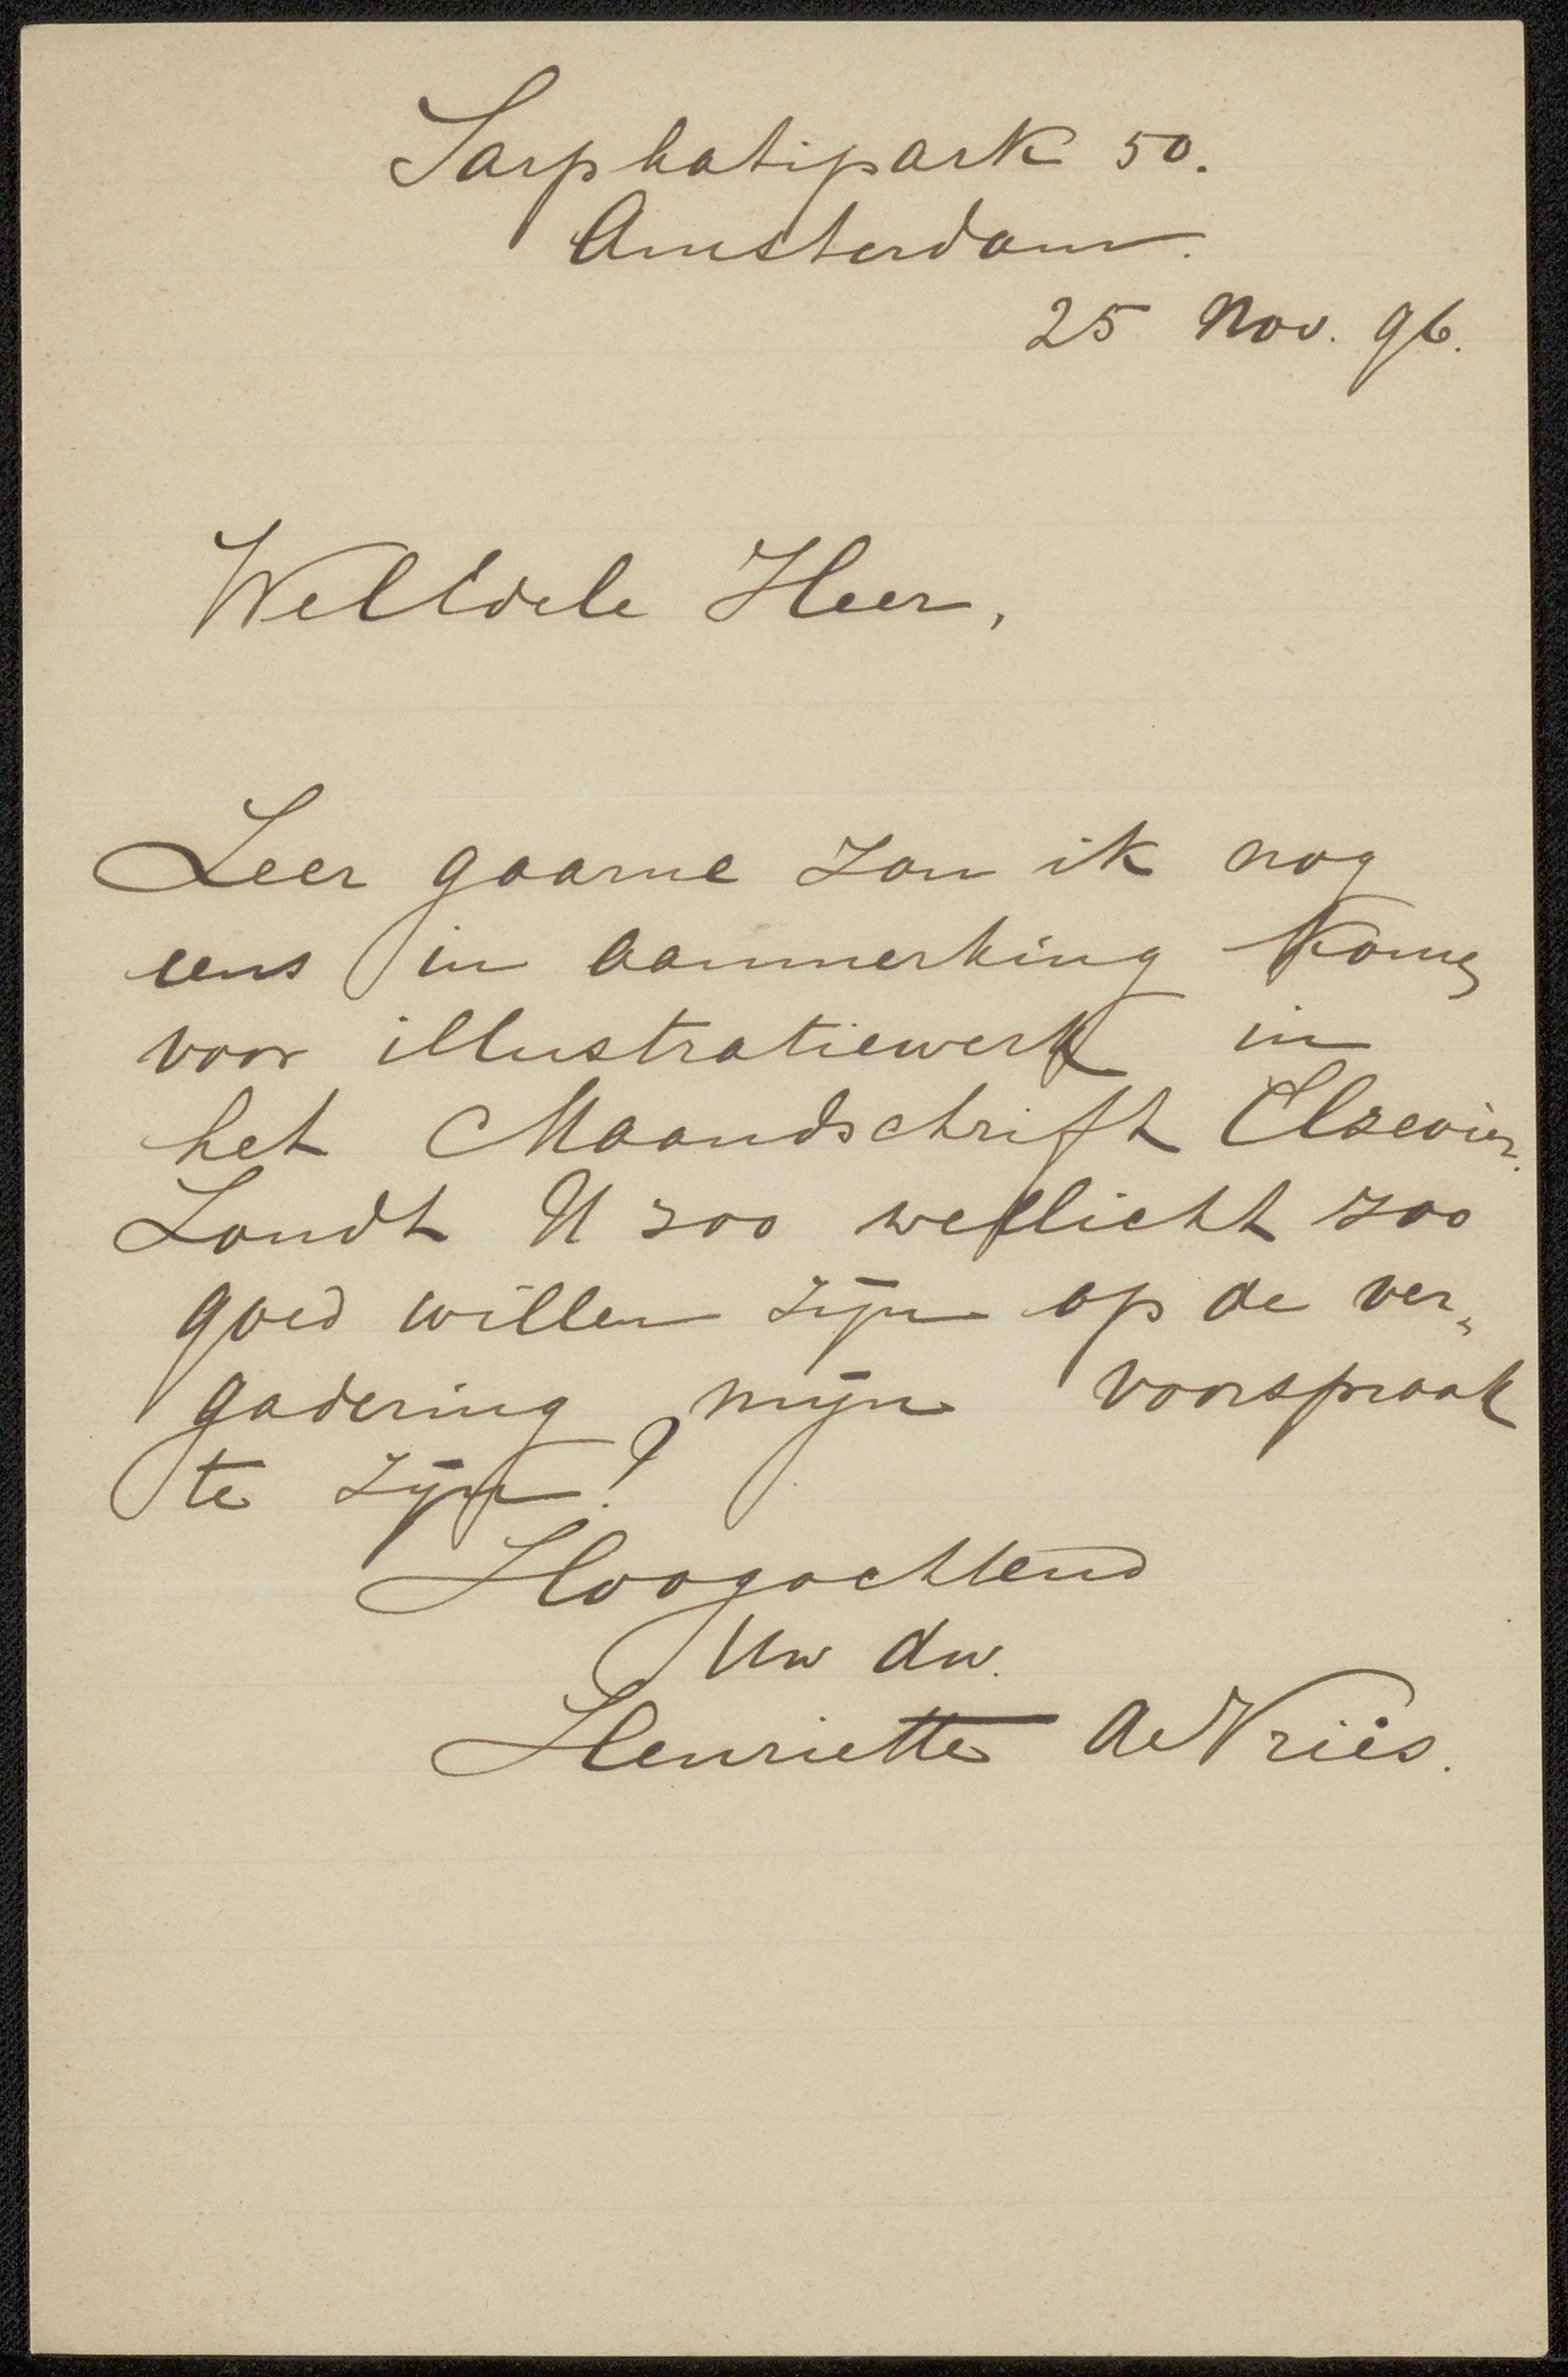 Sarphatipark 50.
Amsterdam.
25 Nov. 96.
WelEdele Heer,
Zeer gaarne zou ik nog
eens in aanmerking komen
voor illustratiewerk in
het Maandschrift Elsevier.
Zoudt U zoo wellicht zoo
goed willen zijn op de ver„
gadering mijn voorspraak
te zijn?
Hoogachtend
Uw dw.
Henriette de Vries.